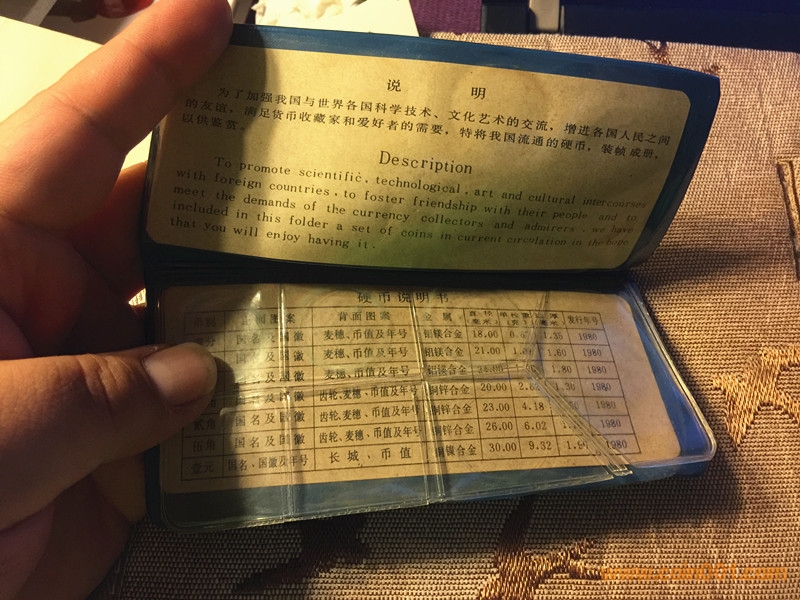 说 明
为了加强我国与世界各国科学技术、文化艺术的交流，增进各国人民之间
的友谊，满足货币收藏家和爱好者的需要，特将我国流通的硬币，装帧成册，
以供鉴赏。
Description
To promote scientific, technological, art and cultural intercourses
with foreign countries, to foster friendship with their people and to
meet the demands of the currency collectors and admirers, we have
included in this folder a set of coins in current circulation in the hope
that you will enjoy having it.
硬币说明书
图案 背面图案 金属 直径 毫米 发行年号
国名及国徽 麦穗、币值及年号 铝镁合金 18.00 1980
国徽 麦穗、币值及年号 铝镁合金 21.00 1.60 1980
及国徽 麦穗、币值及年号 铝镁合金 1.80 1980
国名及国徽 齿轮、麦穗、币值及年号 铜锌合金 20.00 1.30 1980
贰角 国名及国徽 齿轮、麦穗、币值及年号 铜锌合金 23.00 4.18 1980
伍角 国名及国徽 齿轮、麦穗、币值及年号 铜锌合金 26.00 6.02 1980
壹元 国名、国徽及年号 长城、币值 合金 30.00 9.32 1980